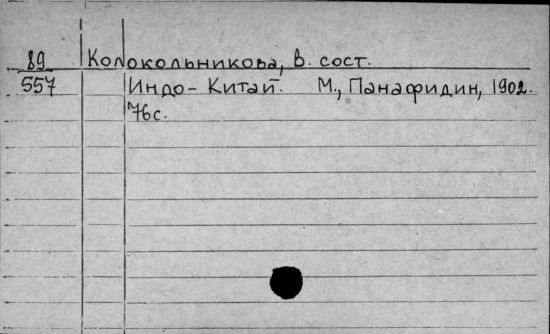 89 Колокольникова, В. сост.
557 Индо-Китай. М., Панафидин, 1902.
76с.